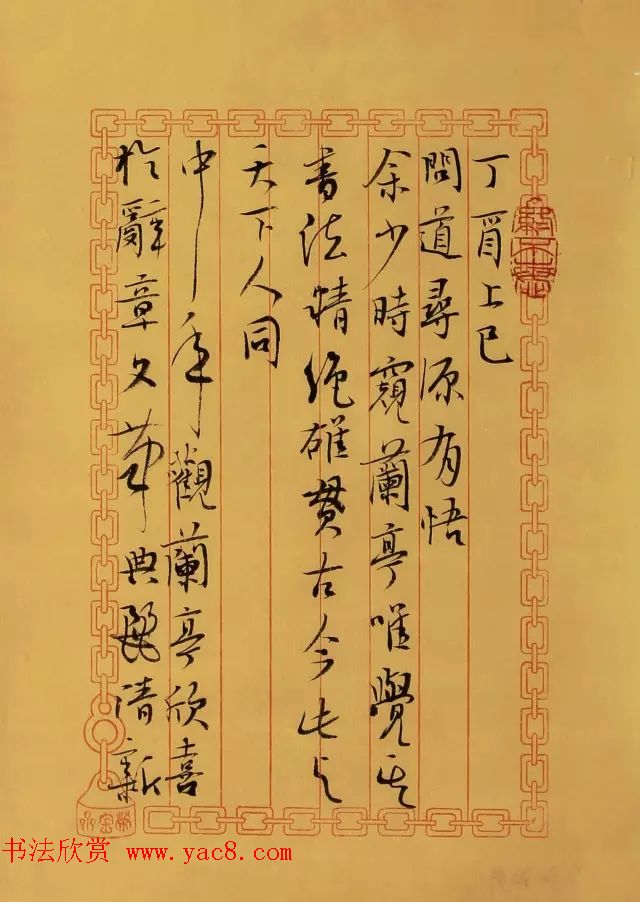 丁酉上巳
問道尋源有悟
余少時窺蘭亭唯覺其
書法精絕雄貫古今此與
天下人同
中年觀蘭亭欣喜
於辭章文華典麗清新
书法欣赏 www.yac8.com